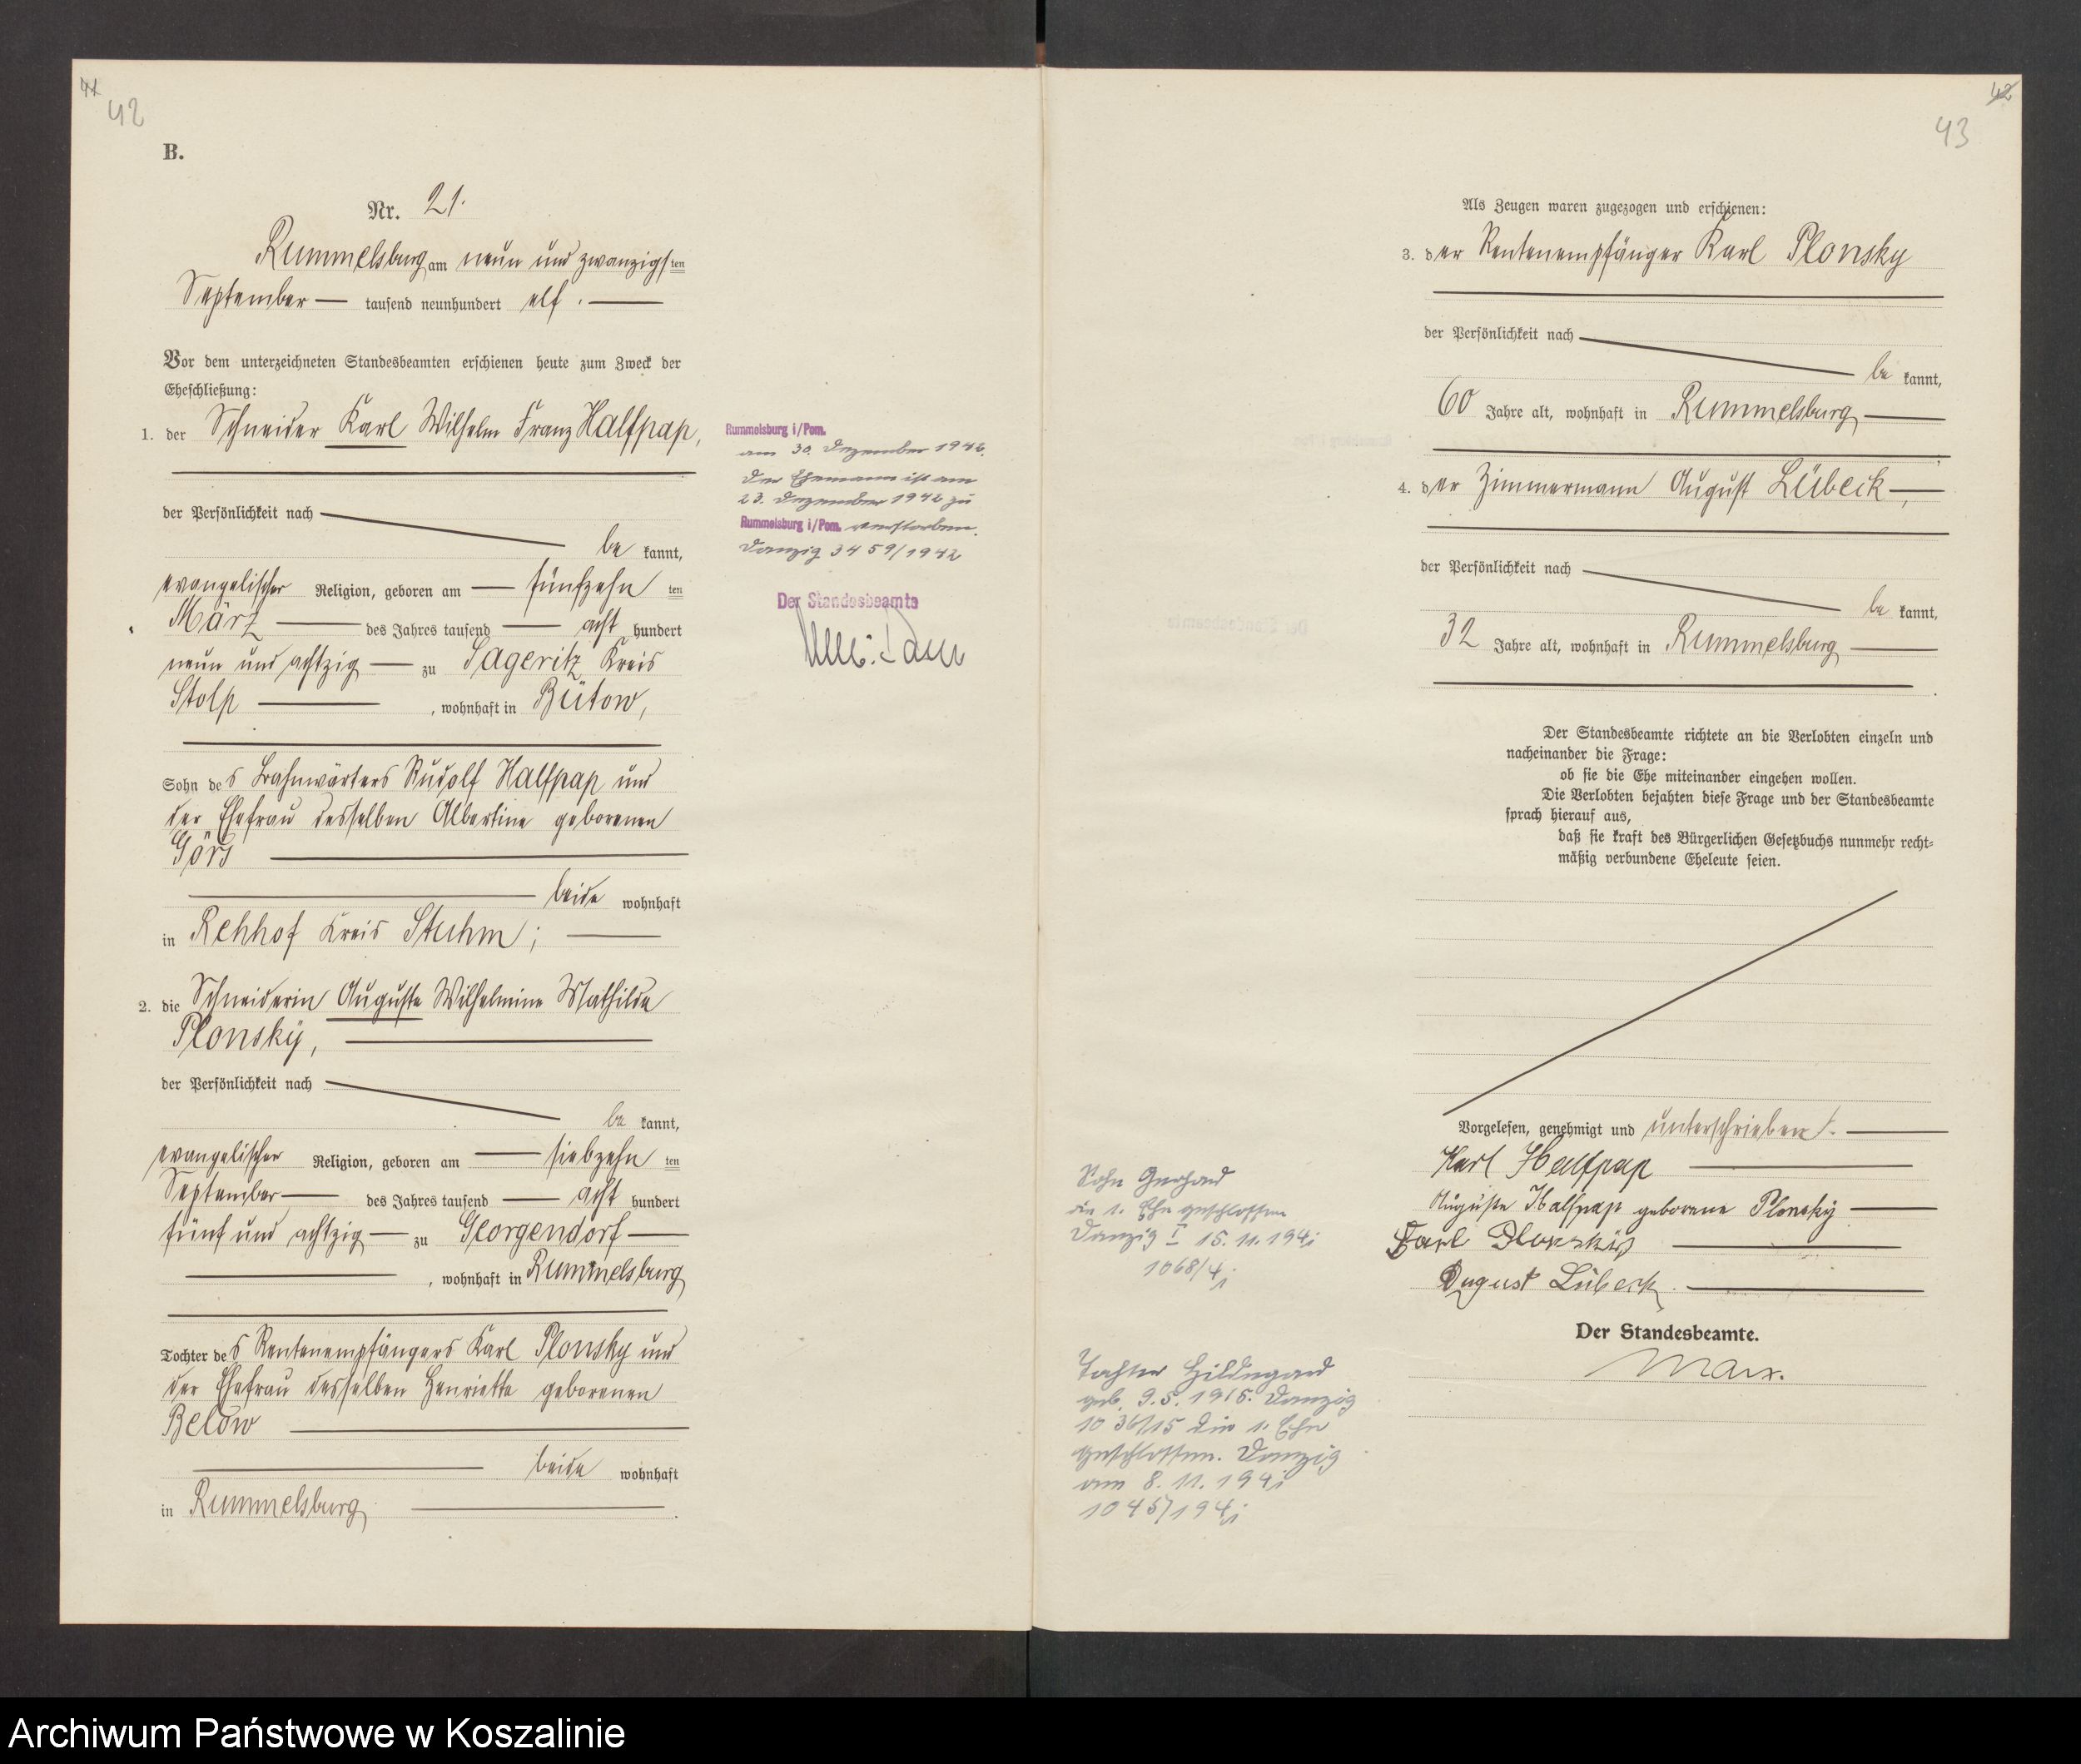 41
42
B.
Nr. 21.
Rummelsburg am neun und zwanzigsten
September — tausend neunhundert elf. —
Vor dem unterzeichneten Standesbeamten erschienen heute zum Zweck der
Eheschließung:
1. der Schneider Karl Wilhelm Franz Halfpap,
der Persönlichkeit nach
be kannt,
evangelischer Religion, geboren am — fünfzehn ten
März — des Jahres tausend — acht hundert
neun und achtzig — zu Sageritz Kreis
Stolp — , wohnhaft in Bütow,
Sohn des Bahnwärters Rudolf Halfpap und
der Ehefrau desselben Albertine geborenen
Görs —
— beide wohnhaft
in Rehhof Kreis Stuhm; —
2. die Schneiderin Auguste Wilhelmine Mathilde
Plonsky, —
der Persönlichkeit nach
be kannt,
evangelischer Religion, geboren am — siebzehn ten
September — des Jahres tausend — acht hundert
fünf und achtzig — zu Georgendorf —
— , wohnhaft in Rummelsburg
Tochter des Rentenempfängers Karl Plonsky und
der Ehefrau desselben Henriette geborenen
Below —
— beide wohnhaft
in Rummelsburg — .
Rummelsburg i/Pom.
am 30. Dezember 1942.
Der Ehemann ist am
23. Dezember 1942 zu
Rummelsburg i/Pom. verstorben.
Danzig 3459/1942
Der Standesbeamte
42
43
Als Zeugen waren zugezogen und erschienen:
3. der Rentenempfänger Karl Plonsky
der Persönlichkeit nach
be kannt,
60 Jahre alt, wohnhaft in Rummelsburg —
4. der Zimmermann August Lübeck —,
der Persönlichkeit nach
be kannt,
32 Jahre alt, wohnhaft in Rummelsburg —
Der Standesbeamte richtete an die Verlobten einzeln und
nacheinander die Frage:
ob sie die Ehe miteinander eingehen wollen.
Die Verlobten bejahten diese Frage und der Standesbeamte
sprach hierauf aus,
daß sie kraft des Bürgerlichen Gesetzbuchs nunmehr recht-
mäßig verbundene Eheleute seien.
Vorgelesen, genehmigt und unterschrieben. —
Karl Halfpap —
Auguste Halfpap geborene Plonsky —
Karl Plonsky —
August Lübeck. —
Der Standesbeamte.
Marx.
Sohn Gerhard
die 1. Ehe geschlossen
Danzig I 15.11.1941
1068/41
Tochter Hildegard
geb. 9.5.1915. Danzig
1036/15 die 1. Ehe
geschlossen. Danzig
am 8.11.1941
1045/1941
Archiwum Państwowe w Koszalinie